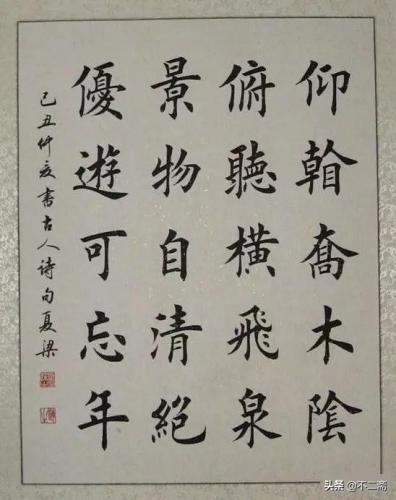 仰喬木陰
俯聽橫飛泉
景物自清絕
優遊可忘年
己丑仲夏書古人詩句夏梁
头条 @不二斋